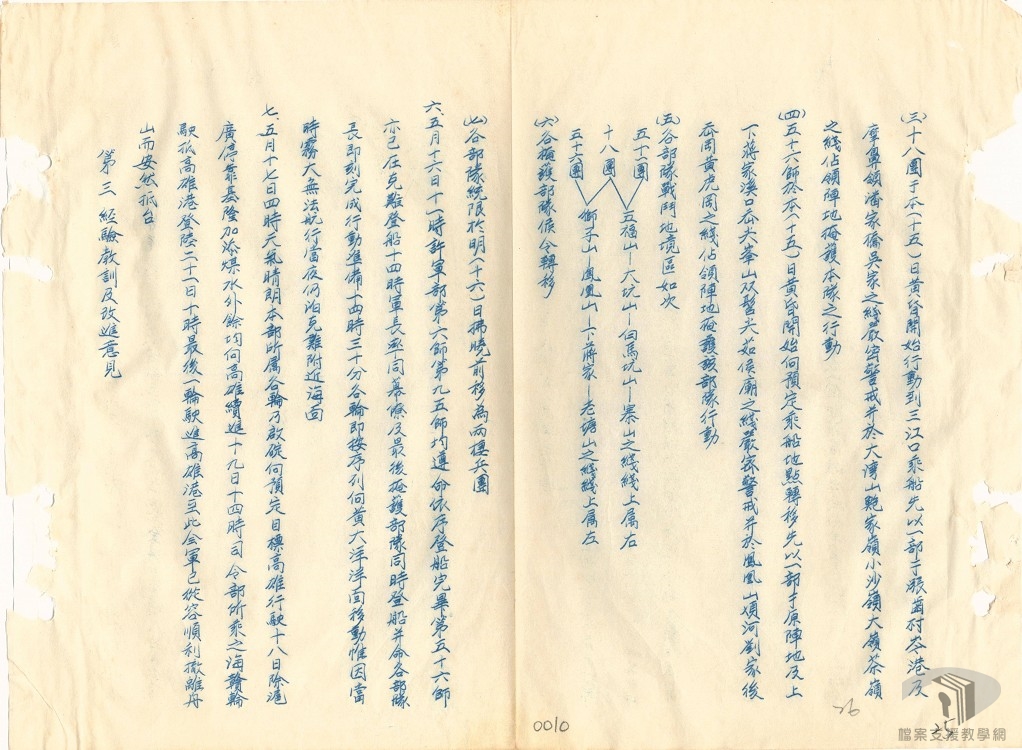 (三)十八團于本(十五)日黃昏開始行動到三江口乘船先以一部于猴酋村岑港及
摩鼻領潘家橋吳家之綫嚴密警戒并於大湾山鮑家嶺小沙嶺大嶺茶嶺
之綫佔領陣地掩護本隊之行動
(四)五十六師於本(十五)日黃昏開始向預定乘船地點轉移先以一部于原陣地及上
下蔣家溪口岙大峯山双髻尖茹侯廟之綫嚴密警戒并於鳳凰山墳河劉家後
岙岡黃虎岡之綫佔領陣地掩護該部隊行動
(五)各部隊戰鬥地境區如次
五十一團
十八團
五十六團
五福山—大坑山—白馬坑山—寨山之綫綫上属右
獅子山—鳳凰山—上下蔣家—老塘山之綫綫上属左
(六)各掩護部隊候令轉移
(七)各部隊統限於明(十六)日拂曉前移為兩棲兵團
六、五月十六日十一時許軍部第六師第九五師均遵命依序登船完畢第五十六師
亦已在克難登船十四時軍長丞同幕僚及最後掩護部隊同時登船并命各部隊
長即刻完成行動準備十四時三十分各輪即按序列向黃大洋洋面移動惟因當
時霧大無法航行當夜仍泊克難附近海面
七、五月十七日四時天氣晴朗本部所属各輪乃啟碇向預定目標高雄行駛十八日除滬
廣停靠基隆加添煤水外餘均向高雄續進十九日十四時司令部所乘之海贛輪
駛抵高雄港登陸二十一日十時最後一輪駛進高雄港至此全軍已從容順利撤離舟
山而安然抵台
第三 經驗教訓及改進意見
0010
26
25
檔案支援教學網